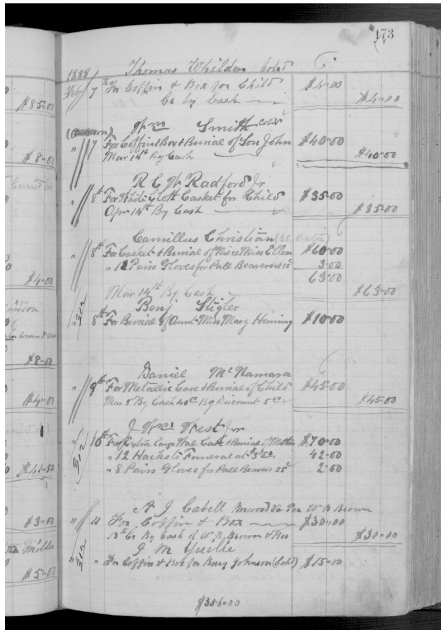 173
1888 Thomas Whilden Cold
Feby 7th For Coffin & Box for Child $4.00
Cr by Cash $4.00
Wm Smith Cold
" 7 For Coffin Box & Burial of Son John $40.00
Mar 14th By Cash $40.00
R C W Radford Jr
" 8th For White Cloth Casket for Child $35.00
Apr 14th By Cash $35.00
Camillus Christian
" 8th For Casket & Burial of Niece Miss Ellen $60.00
" 12 Pairs Gloves for Pall Bearers 25 3.00
63.00
Mar 14th By Cash $63.00
Benj Stigler
8th For Burial of Aunt Miss Mary Hening $10.00
Daniel McNamara
" 9th For Metallic Case & Burial of Child $45.00
Mar 5 By Cash 40 By Discount 5 $45.00
J Wm West Jr
" 10th For Extra Large Wal Cask & Burial of Mother $70.00
" 12 Hacks to Funeral at 42.00
" 8 Pairs Gloves for Pall Bearers 25 2.00
A J Cabell Per W A Brown
" 11 For Coffin & Box $30.00
Cr By Cash of W A Brown $30.00
J M
" " For Coffin & Box for Mary Johnson (Cold) $15.00
$356.00
$85.00
$8.00
$4.00
$8.00
$4.00
$3.00
Miller
$5.00